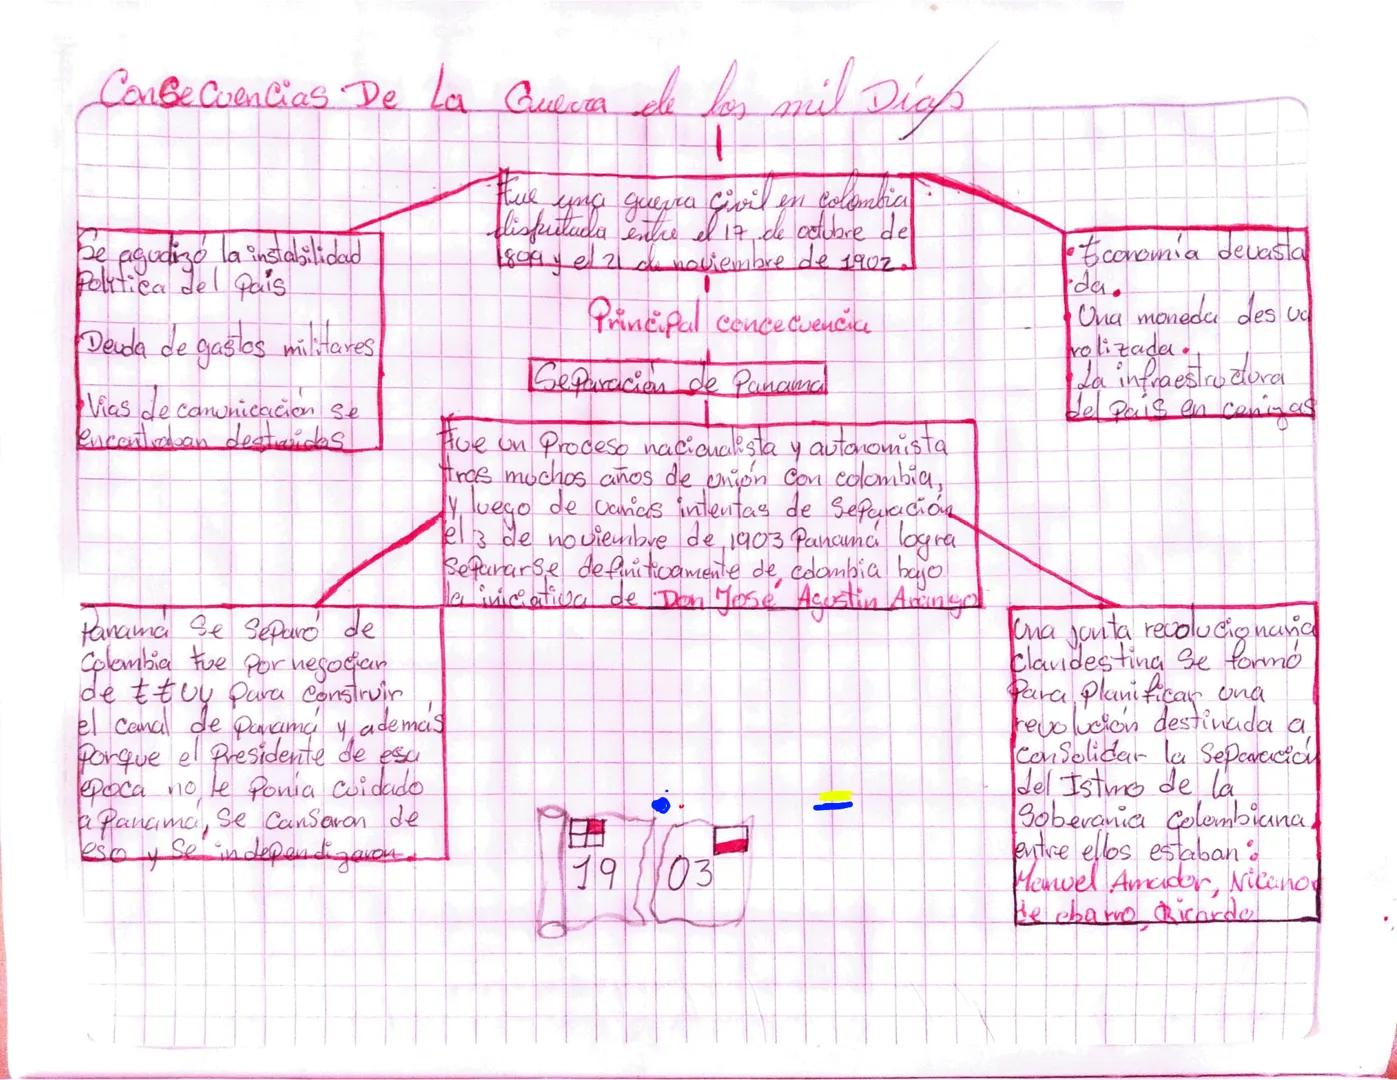 Consecuencias De La Guerra de los mil Días
Fue una guerra civil en colombia
disputada entre el 17 de octubre de
1899 y el 21 de noviembre de 1902.
Se agudizó la instabilidad
Política del País
Deuda de gastos militares
Vias de comunicación se
encontraban destruidas
• Economía devasta
da.
Una moneda des va
rolizada.
La infraestructura
del País en cenizas
Principal concecuencia
Separación de Panama
Fue un Proceso nacionalista y autonomista
tras muchos años de unión con colombia,
y luego de varias intentas de Separación
el 3 de noviembre de 1903 Panamá logra
Separarse definitivamente de colombia bajo
la iniciativa de Don José Agustin Arango
Panamá Se Separó de
Colombia fue Por negociar
de EEUU Para construir
el canal de Panamá y además
Porque el Presidente de esa
epoca no le Ponia cuidado
a Panama, Se cansaron de
eso y Se independizaron.
Una junta revolucionaria
clandestina Se formó
Para Planificar una
revolución destinada a
consolidar la Separación
del Istmo de la
Soberania Colombiana
entre ellos estaban:
Manuel Amador, Nicano
de obarrio, Ricardo
19 03